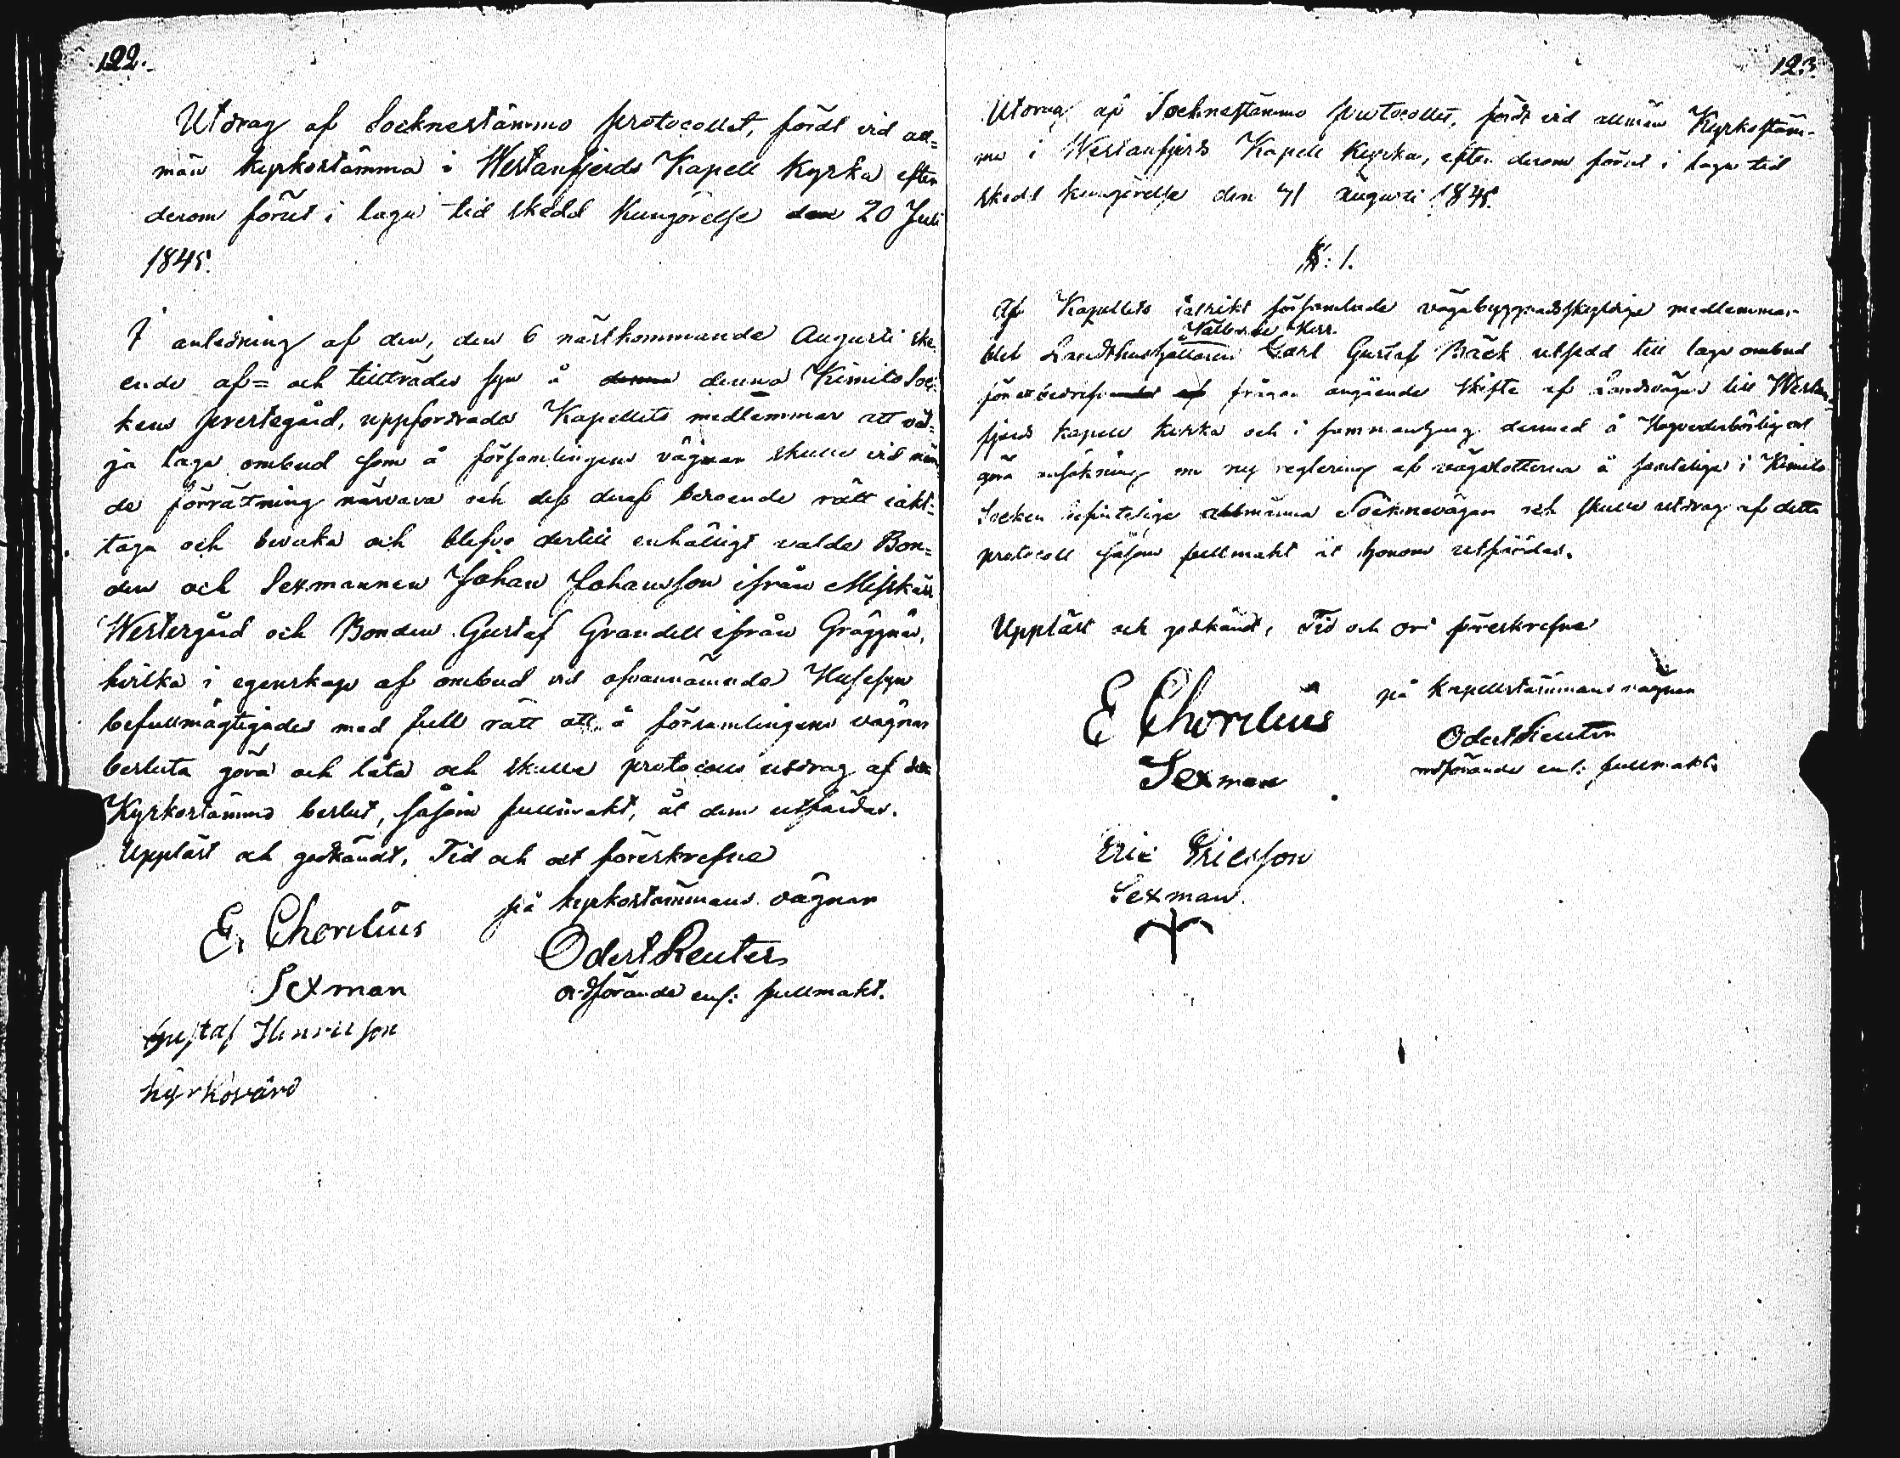 122.
Utdrag af Socknestämmo protocollet, fördt vid all=
män kyrkostämma i Westanfjerds Kapell Kyrka efter
derom förut i laga tid skedd Kungörelse den 20 Juli
1845.
I anledning af den, den 6 nästkommande Augusti ske
ende af= och tillträdes syn å denna Kimito Soc
kens prestegård, uppfordrade Kapellets medlemmar att väl=
ja laga ombud som å församlingens vägnar skulle vid näm
de förrättning närvara och dess deraf beroende rätt iakt=
taga och bevaka och blefvo dertill enhälligt valde Bon=
den och Sexmannen Johan Johansson ifrån Misskärr
Westergård och Bonden Gustaf Grandell ifrån Gräggnäs,
hvilka i egenskap af ombud vid ofvannämnda Husesyn
befullmägtigades med full rätt att å församlingens vägnar
besluta göra och låta och skulle protocolls utdrag af den
Kyrkostämmo beslut, såsom fullmakt, åt dem utfärdas.
Uppläst och godkändt, Tid och ort förеskrefne
på kyrkostämmans vägnar
E. Chorelius
Odert Reuter
Sexman
ordförande enl: fullmakt.
Gustaf Henricsson
kyrkovärd
123.
Utdrag af Socknestämmo protocollet, fördt vid allmän Kyrkostäm-
ma i Westanfjerds Kapell Kyrka, efter derom förut i laga tid
skedd kungörelse den Augusti 1845.
§: 1.
Af Kapellets talrikt församlade vägabyggnadsskyldige medlemmar
Välborne Herr
blef Landthushållaren Carl Gustaf Bäck utsedd till laga ombud
frågan angående skifte af Landsvägen till Westan-
fjerds kapell kyrka och i sammanhang dermed å Högvederbörlig ort
göra ansökning om ny reglering af vägalotterna å samtelige i Kimito
Socken befintelige allmänna Sockne vägar och skulle utdrag af detta
protocoll såsom fullmakt åt honom utfärdas.
Uppläst och godkändt, Tid och ort föreskrefne
på kapellstämmans vägnar
E Chorelius
Odert Reuter
Sexman
ordförande enl: fullmakt.
Eric Ericsson
Sexman.